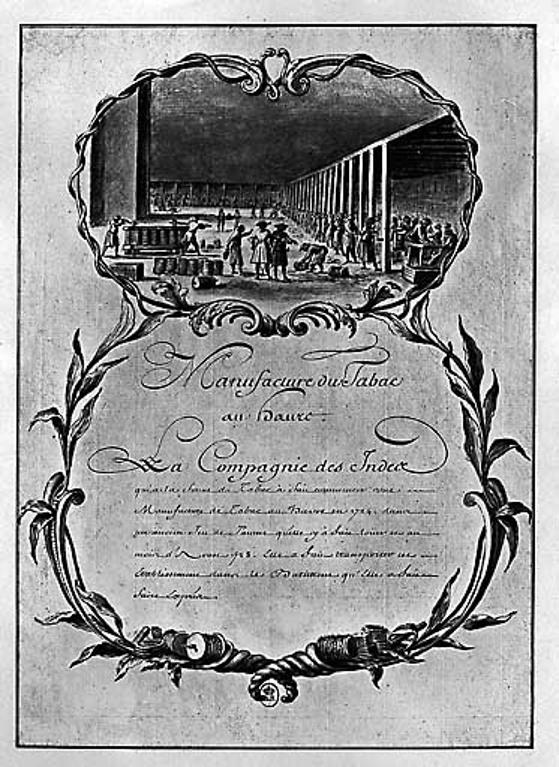 Manufacture du Tabac
au havre.
La Compagnie des Indes
qui a la ferme du Tabac a fait commencer une
Manufacture de Tabac au Havre en 1724. dans
un ancien Jeu de Paume qu'elle y a fait louer et au
mois d' 1728. Elle a fait transporter cet
Etablissement dans le Batiment qu'elle a fait
faire Exprés